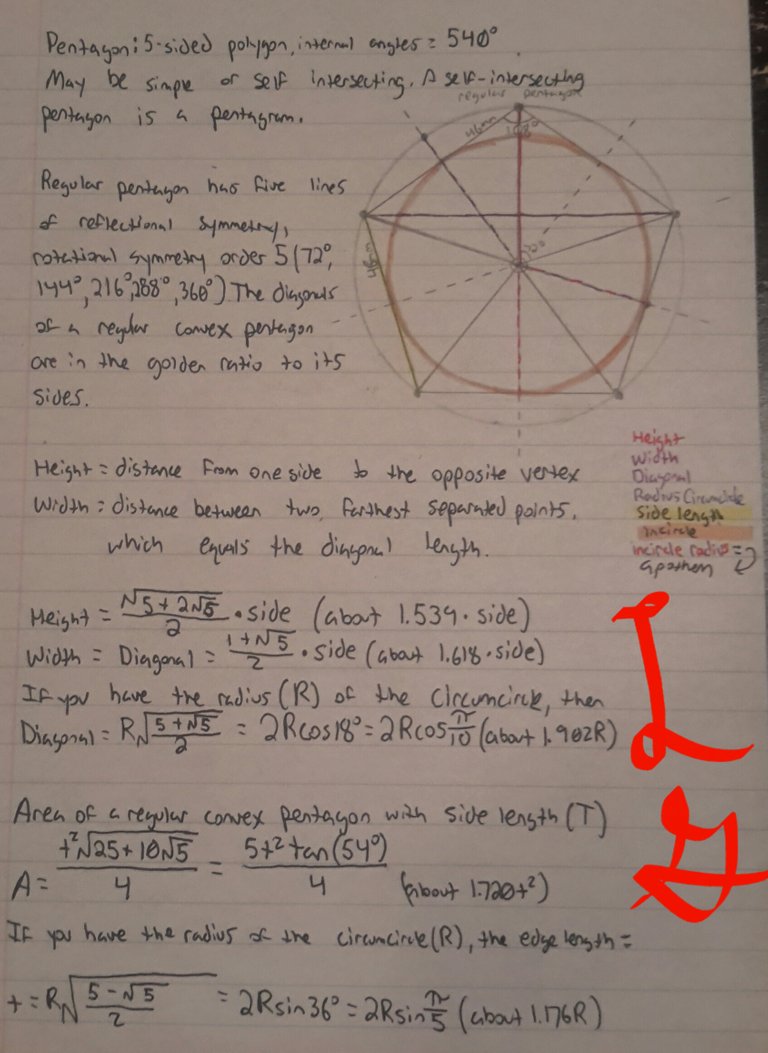 Pentagon: 5-sided polygon, internal angles = 540°.
May be simple or self intersecting. A self-intersecting
pentagon is a pentagram.
regular pentagon
46mm
108°
Regular pentagon has five lines
of reflectional symmetry,
rotational symmetry order 5 (72°,
144°, 216°, 288°, 360°) The diagonals
of a regular convex pentagon
are in the golden ratio to its
sides.
72°
Height = distance from one side to the opposite vertex
Width = distance between two farthest separated points,
which equals the diagonal length.
Height
Width
Diagonal
Radius Circumcircle
side length
incircle
incircle radius =
apothem
Height = √5+2√5/2 · side (about 1.539 · side)
Width = Diagonal = 1+√5/2 · side (about 1.618 · side)
If you have the radius (R) of the circumcircle, then
Diagonal = R√5+√5/2 = 2Rcos18° = 2Rcos π/10 (about 1.902R)
Area of a regular convex pentagon with side length (T)
A = t²√25+10√5/4 = 5t² tan(54°)/4 (about 1.720t²)
If you have the radius of the circumcircle (R), the edge length =
t = R√5-√5/2 = 2Rsin36° = 2Rsin π/5 (about 1.176R)